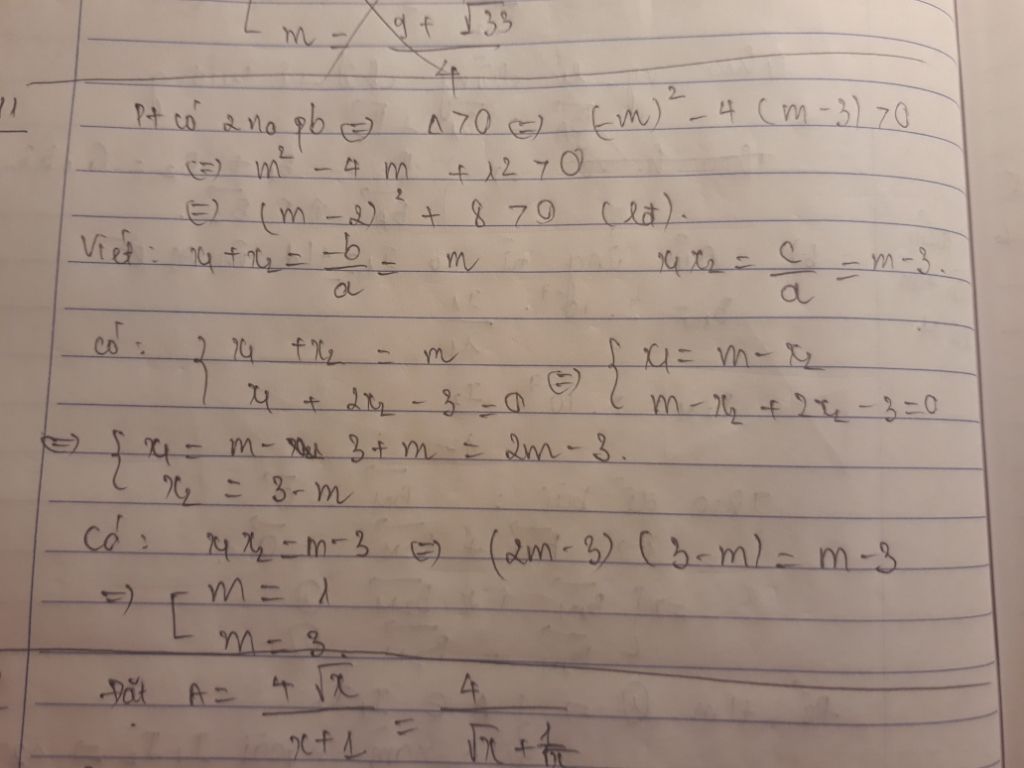 m = (9 + √33)/4
Pt có 2 no pb ⇔ Δ > 0 ⇔ (-m)² - 4(m-3) > 0
⇔ m² - 4m + 12 > 0
⇔ (m-2)² + 8 > 0 (lđ).
Viét: x₁ + x₂ = -b/a = m x₁x₂ = c/a = m-3.
có: { x₁ + x₂ = m ⇔ { x₁ = m - x₂
x₁ + 2x₂ - 3 = 0 m - x₂ + 2x₂ - 3 = 0
⇔ { x₁ = m - 3 + m = 2m - 3.
x₂ = 3 - m
Có: x₁x₂ = m-3 ⇔ (2m-3)(3-m) = m-3
⇒ [ m = 1
m = 3.
Đặt A = 4√x/(x+1) = 4/(√x + 1/√x)